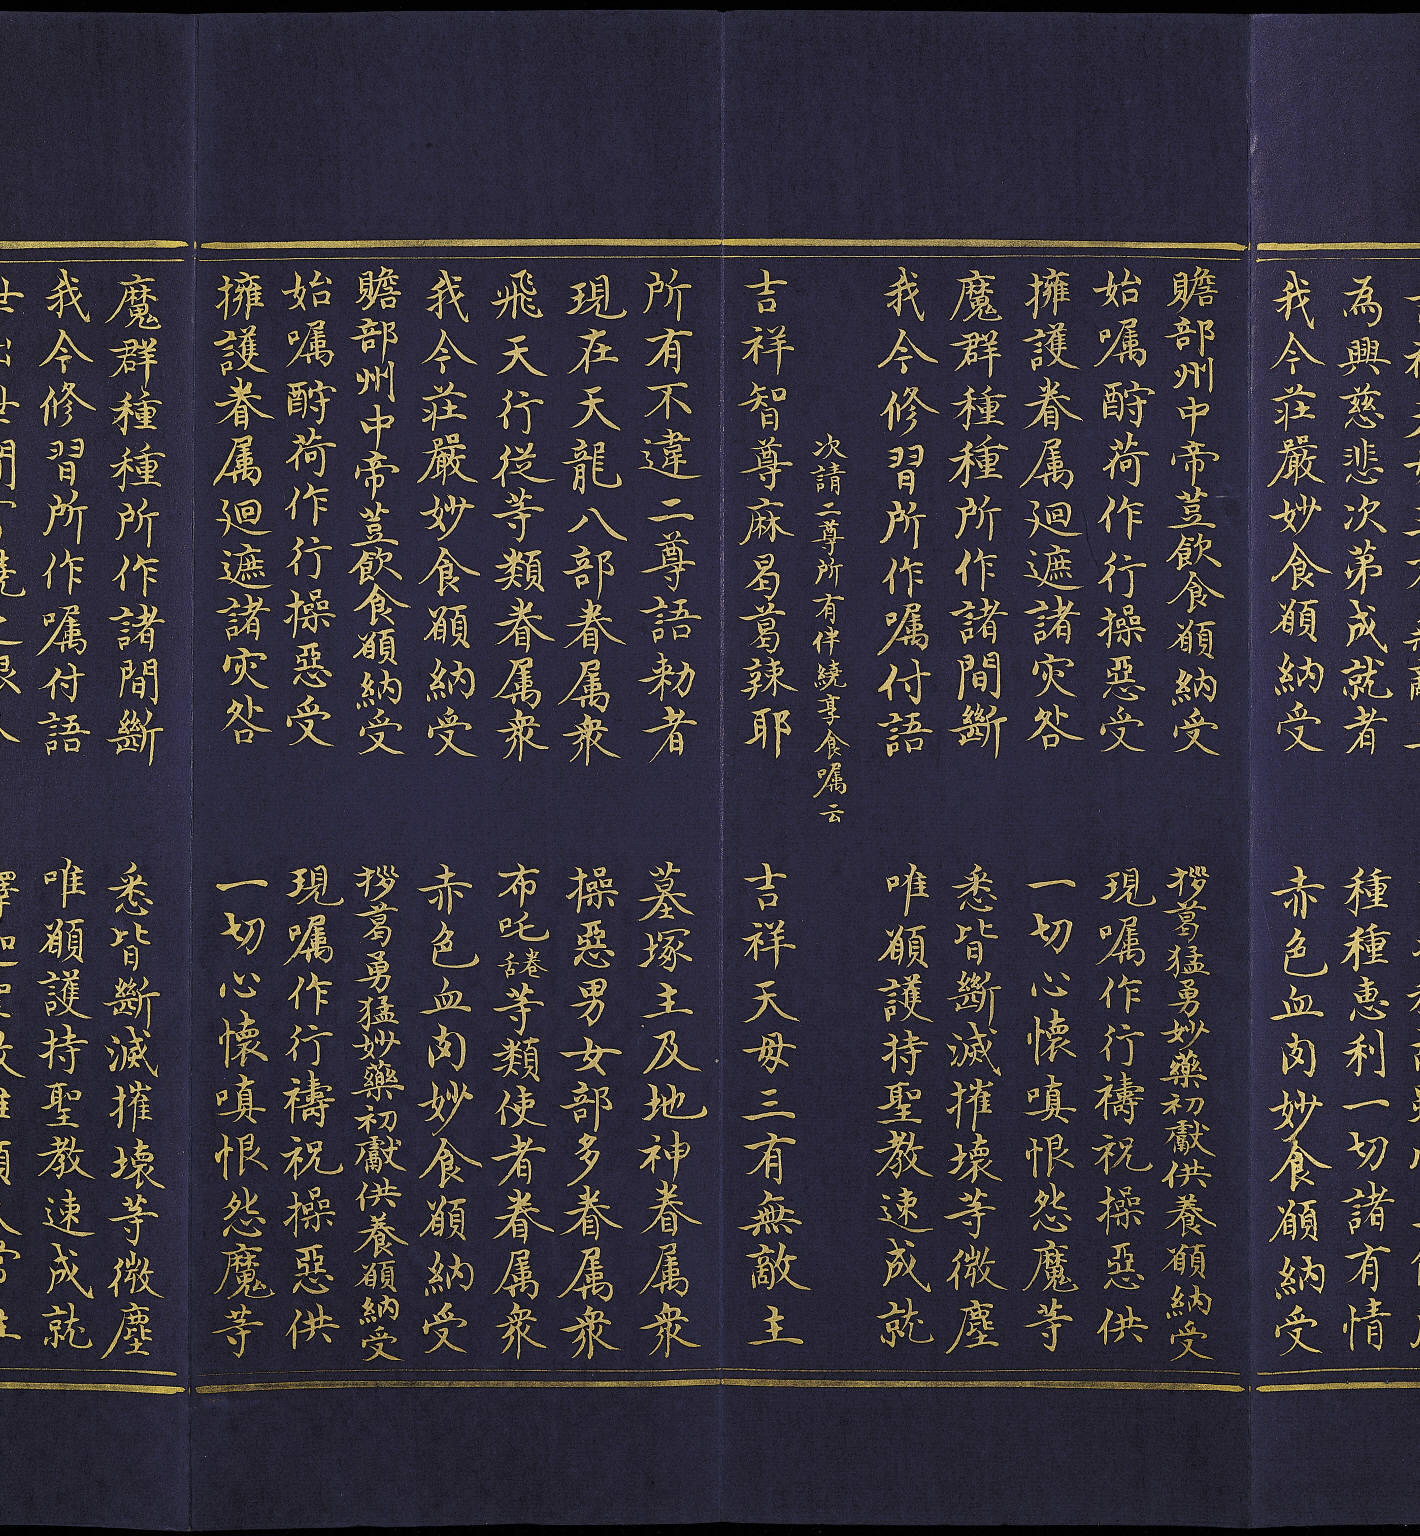 為興慈悲次第成就者　種種惠利一切諸有情
我今莊嚴妙食願納受　赤色血肉妙食願納受
贍部州中帝荳飲食願納受　拶葛猛勇妙藥初獻供養願納受
始囑酹荷作行操惡受　現囑作行禱祝操惡供
擁護眷属廻遮諸灾咎　一切心懷嗔恨怨魔等
魔群種種所作諸間斷　悉皆斷滅摧壞等微塵
我今修習所作囑付語　唯願護持聖教速成就
次請二尊所有伴繞享食囑云
吉祥智尊麻曷葛辣耶　吉祥天母三有無敵主
所有不違二尊語勑者　墓塚主及地神眷属衆
現在天龍八部眷属衆　操惡男女部多眷属衆
飛天行從等類眷属衆　布吒卷舌等類使者眷属衆
我今莊嚴妙食願納受　赤色血肉妙食願納受
贍部州中帝荳飲食願納受　拶葛勇猛妙藥初獻供養願納受
始囑酹荷作行操惡受　現囑作行禱祝操惡供
擁護眷属廻遮諸灾咎　一切心懷嗔恨怨魔等
魔群種種所作諸間斷　悉皆斷滅摧壞等微塵
我今修習所作囑付語　唯願護持聖教速成就